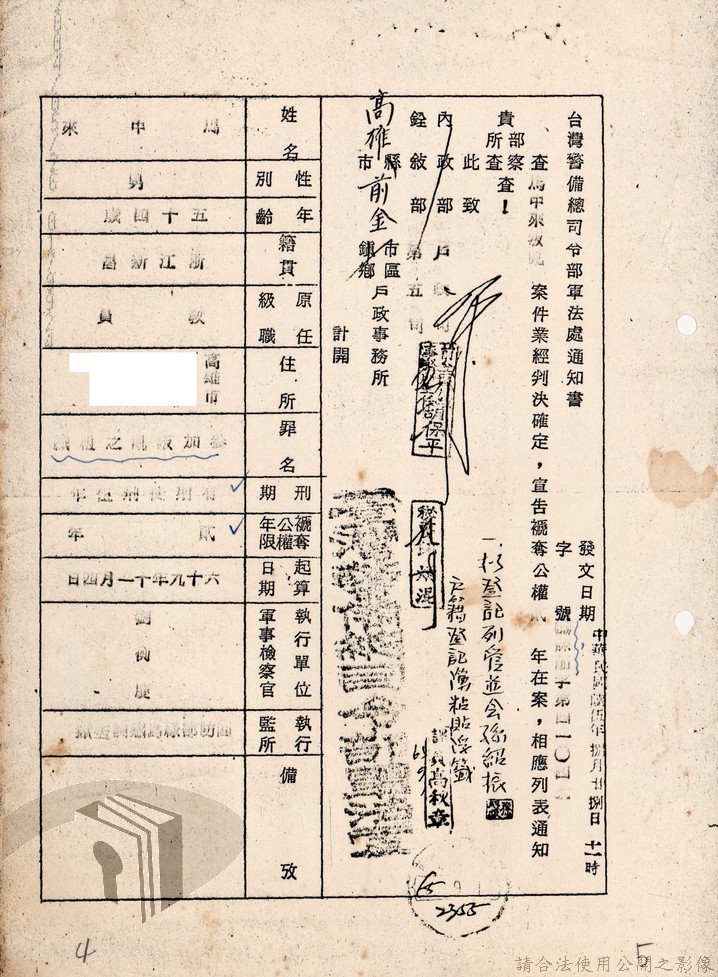 台灣警備總司令部軍法處通知書
發文日期 中華民國陸伍年捌月廿捌日十一時
字號
查馬中來叛亂案件業經判決確定，宣告褫奪公權貳年在案，相應列表通知
貴部所察查！
此致
內政部戶政司
銓敘部第五司
高雄縣市前金市區鎮鄉戶政事務所
計開
一、於登記列管並會孫紹振
戶籍登記簿粘貼浮籤
胡保平
課員高秋章
65
2355
姓名 馬中來
性別 男
年齡 五十四歲
籍貫 浙江新昌
原任級職 教員
住所 高雄市
罪名 參加叛亂之組織
刑期 有期徒刑伍年
褫奪公權年限 貳年
起算日期 六十九年十一月四日
執行單位軍事檢察官
執行監所 國防部綠島感訓監獄
備攷
4
5
請合法使用公開之影像